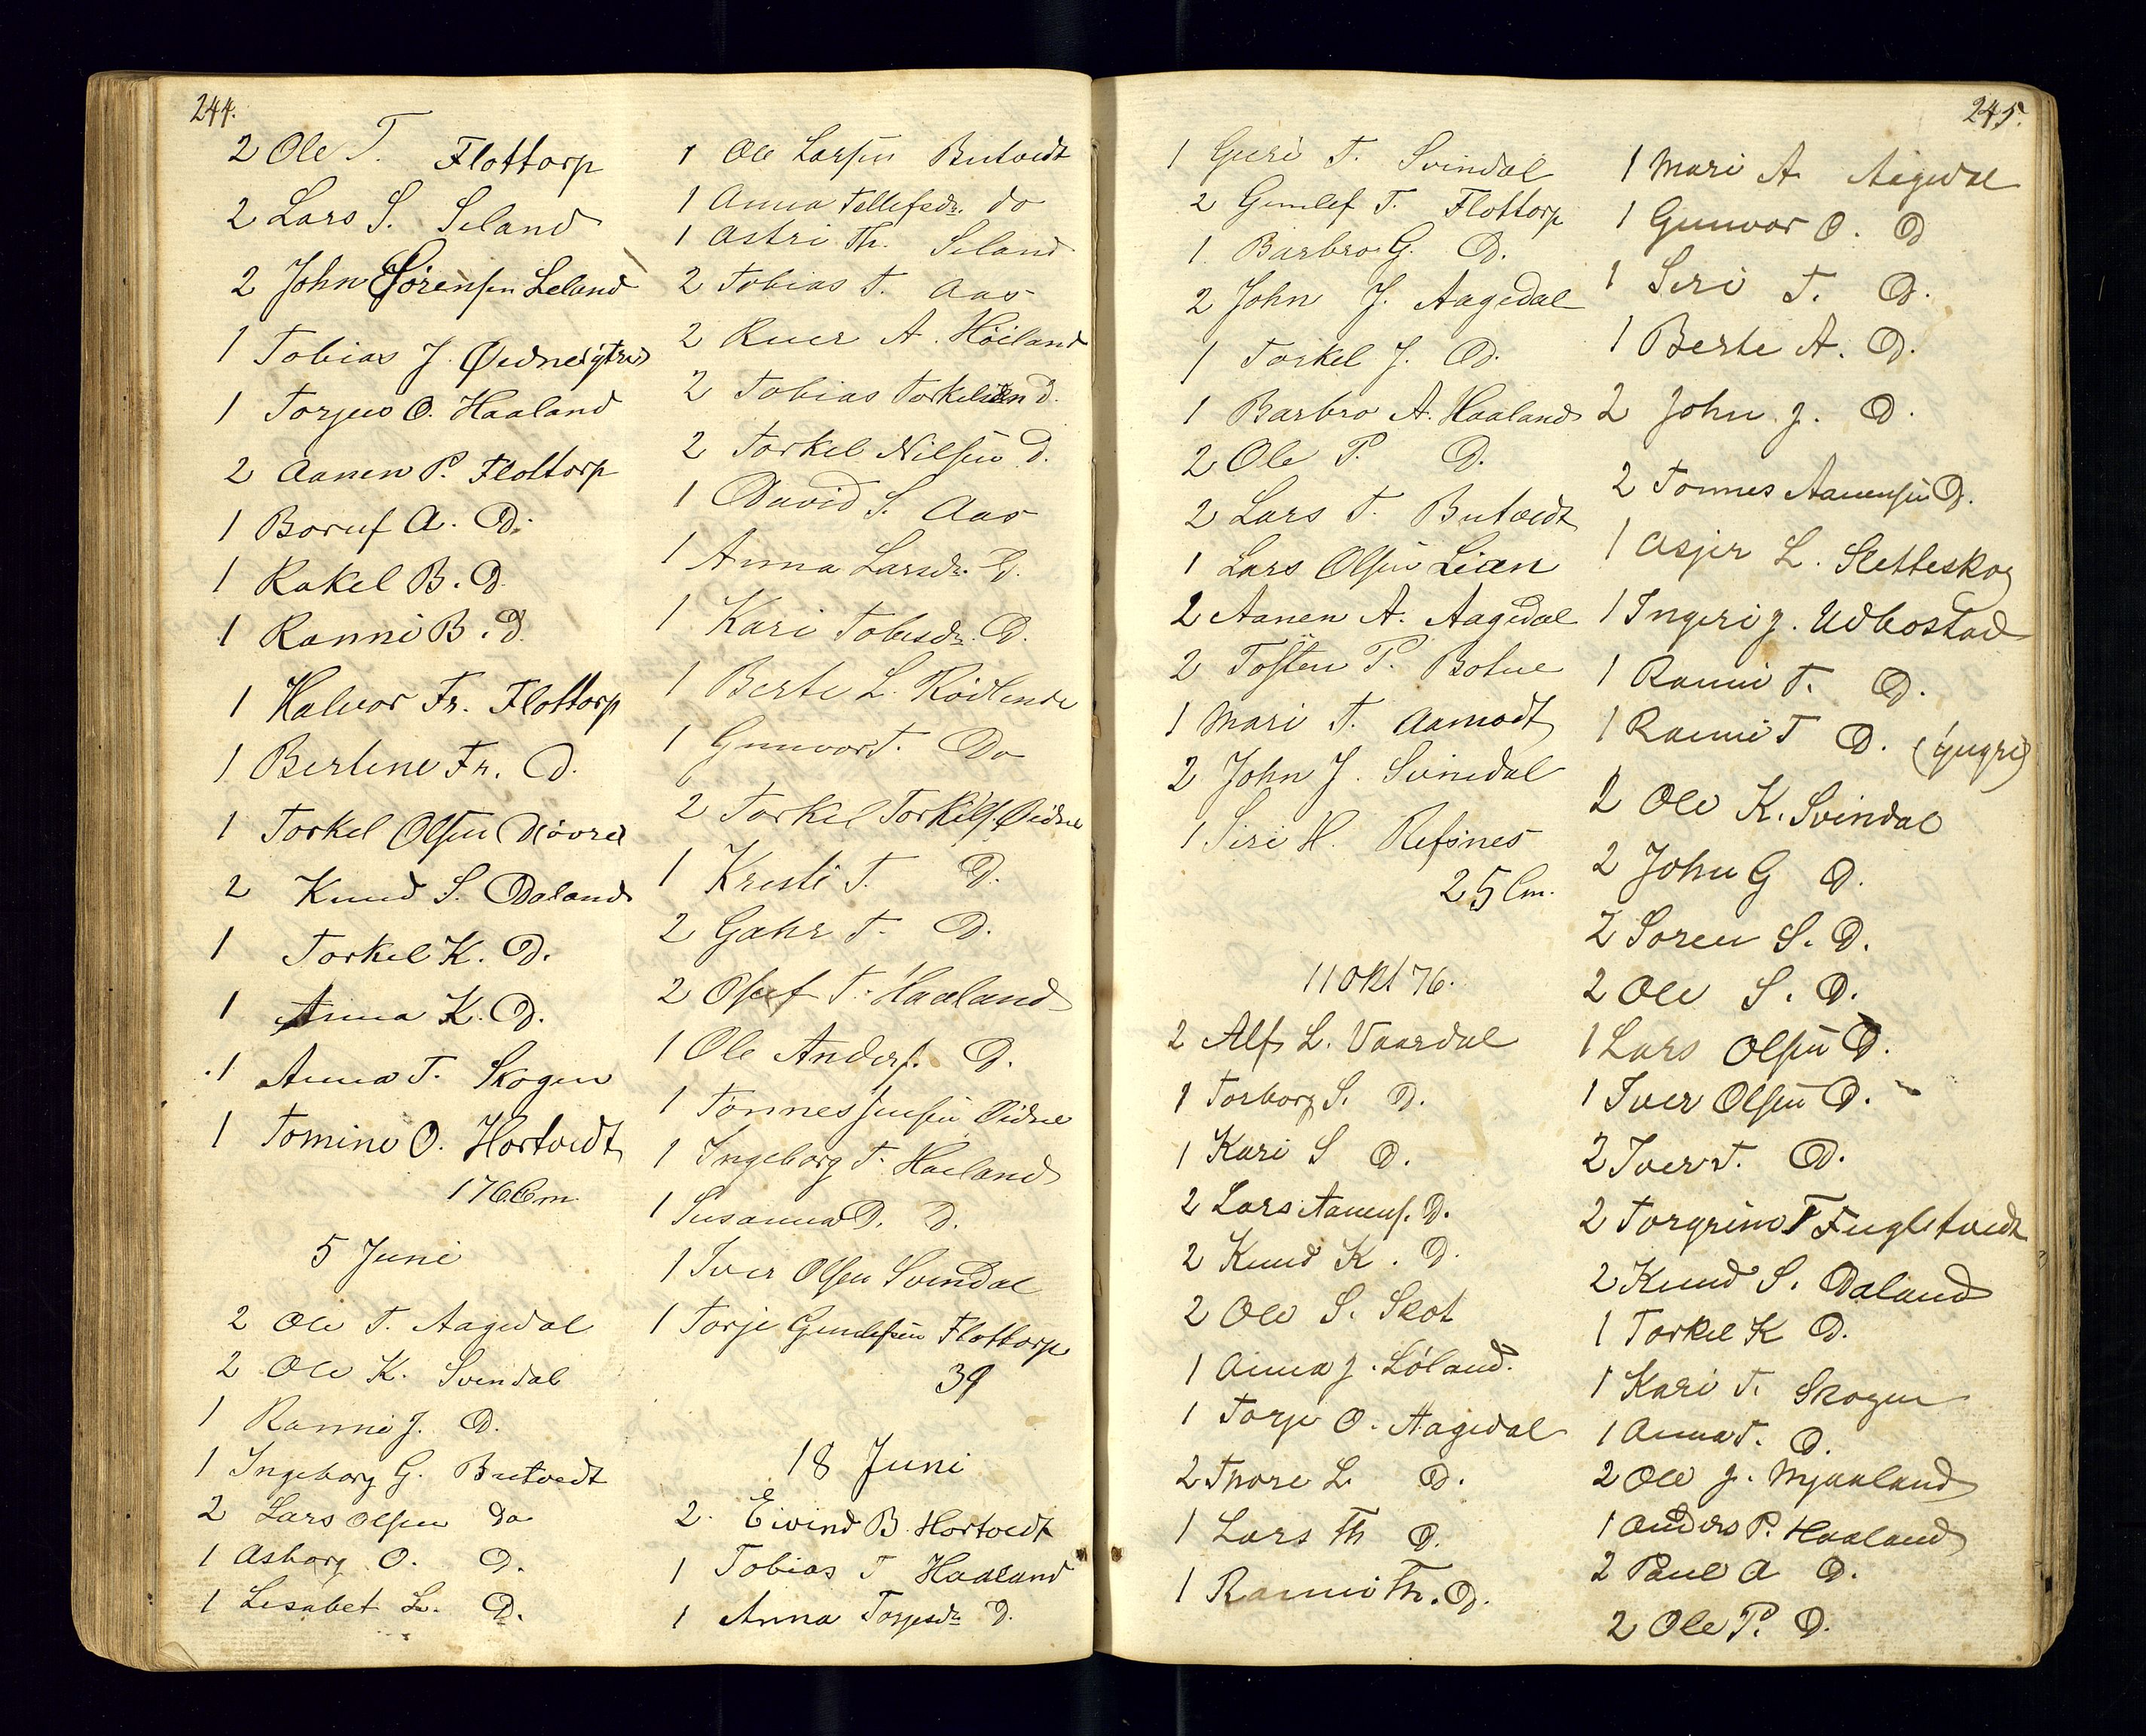 244.
2 Ole T. Flottorp
2 Lars S. Seland
2 John Sörensen Seland
1 Tobias J. Øidne
1 Torjus O. Haaland
2 Aanen P. Flottorp
1 Boruf A. D.
1 Rakel B. D.
1 Ranni B. D.
1 Halvor Fr. Flottorp
1 Bertine Fr. D.
1 Torkel Olsen
2 Knud S. Daland
1 Torkel K. D.
1 Anna K. D.
1 Anna T. Skogen
1 Tomine O. Hortvedt
17
5 Juni
2 Ole T. Aagedal
2 Ole K. Svindal
1 Ranni J. D.
1 Ingeborg G. Butvedt
2 Lars Olsen do
1 Asborg O. D.
1 Lisabet L. D.
1 Ole Larsen Butvedt
1 Anna Tellefsdr. do
1 Astri Th. Seland
2 Tobias T. Aas
2 Knut A. Höiland
2 Tobias Torkelsen D.
2 Torkel Nilsen D.
1 David S. Aas
1 Anna Larsdr. D.
1 Kari Tobiasdr. D.
1 Berte L. Rödlende
1 Gunvor T. Do
2 Torkel Torkels. Øidne
1 Kristi T. D.
2 Gahr T. D.
2 Osuf T. Haaland
1 Ole Anders. D.
1 Tönnes Jensen Øidne
1 Ingeborg T. Haaland
1 Susanna D. D.
1 Iver Olsen Svindal
1 Torje Gunlefsen Flottorp
39
18 Juni
2. Eivind B. Hortvedt
1 Tobias T Haaland
1 Anna Torjesdr D.
245.
1 Guri T. Svindal
2 Gunlef T. Flottorp
1. Barbro G. D.
2 John J. Aagedal
1 Torkel J. D.
1 Barbro A. Haaland
2 Ole P. D.
2 Lars T. Butvedt
1 Lars Olsen Lian
2 Aanen A. Aagedal
2 Tosten P. Botne
1 Mari T. Aamodt
2 John J. Svindal
1 Siri H. Refsnes
25 Cm.
11 Okt 76.
2 Alf L. Vaardal
1 Torborg S. D.
1 Kari S D.
2 Lars Aanens. D.
2 Knud K. D.
2 Ole S. Skot
1 Anna J. Löland.
1 Torje O. Aagedal
2 Thore L D.
1 Lars Th D.
1 Ranni Th. D.
1 Mari A Aagedal
1 Gunvor O. D
1 Siri T. D.
1 Berte A. D.
2 John J. D.
2 Tönnes Aanensen D.
1 Asjer L. Sletteskog
1 Ingeri J. Udbostad
1 Ranni T. D.
1 Ranni T D. (yngre)
2 Ole K. Svindal
2 John G D.
2 Sören S. D.
2 Ole S. D.
1 Lars Olsen D.
1 Iver Olsen D.
2 Iver T. D.
2 Torgrim T Fugletvedt
2 Knud S. Daland
1 Torkel K D.
1 Kari T. Skogen
1 Anna T. D.
2 Ole J. Mjaaland
1 Anders P. Haaland
2 Paul A D.
2 Ole P. D.